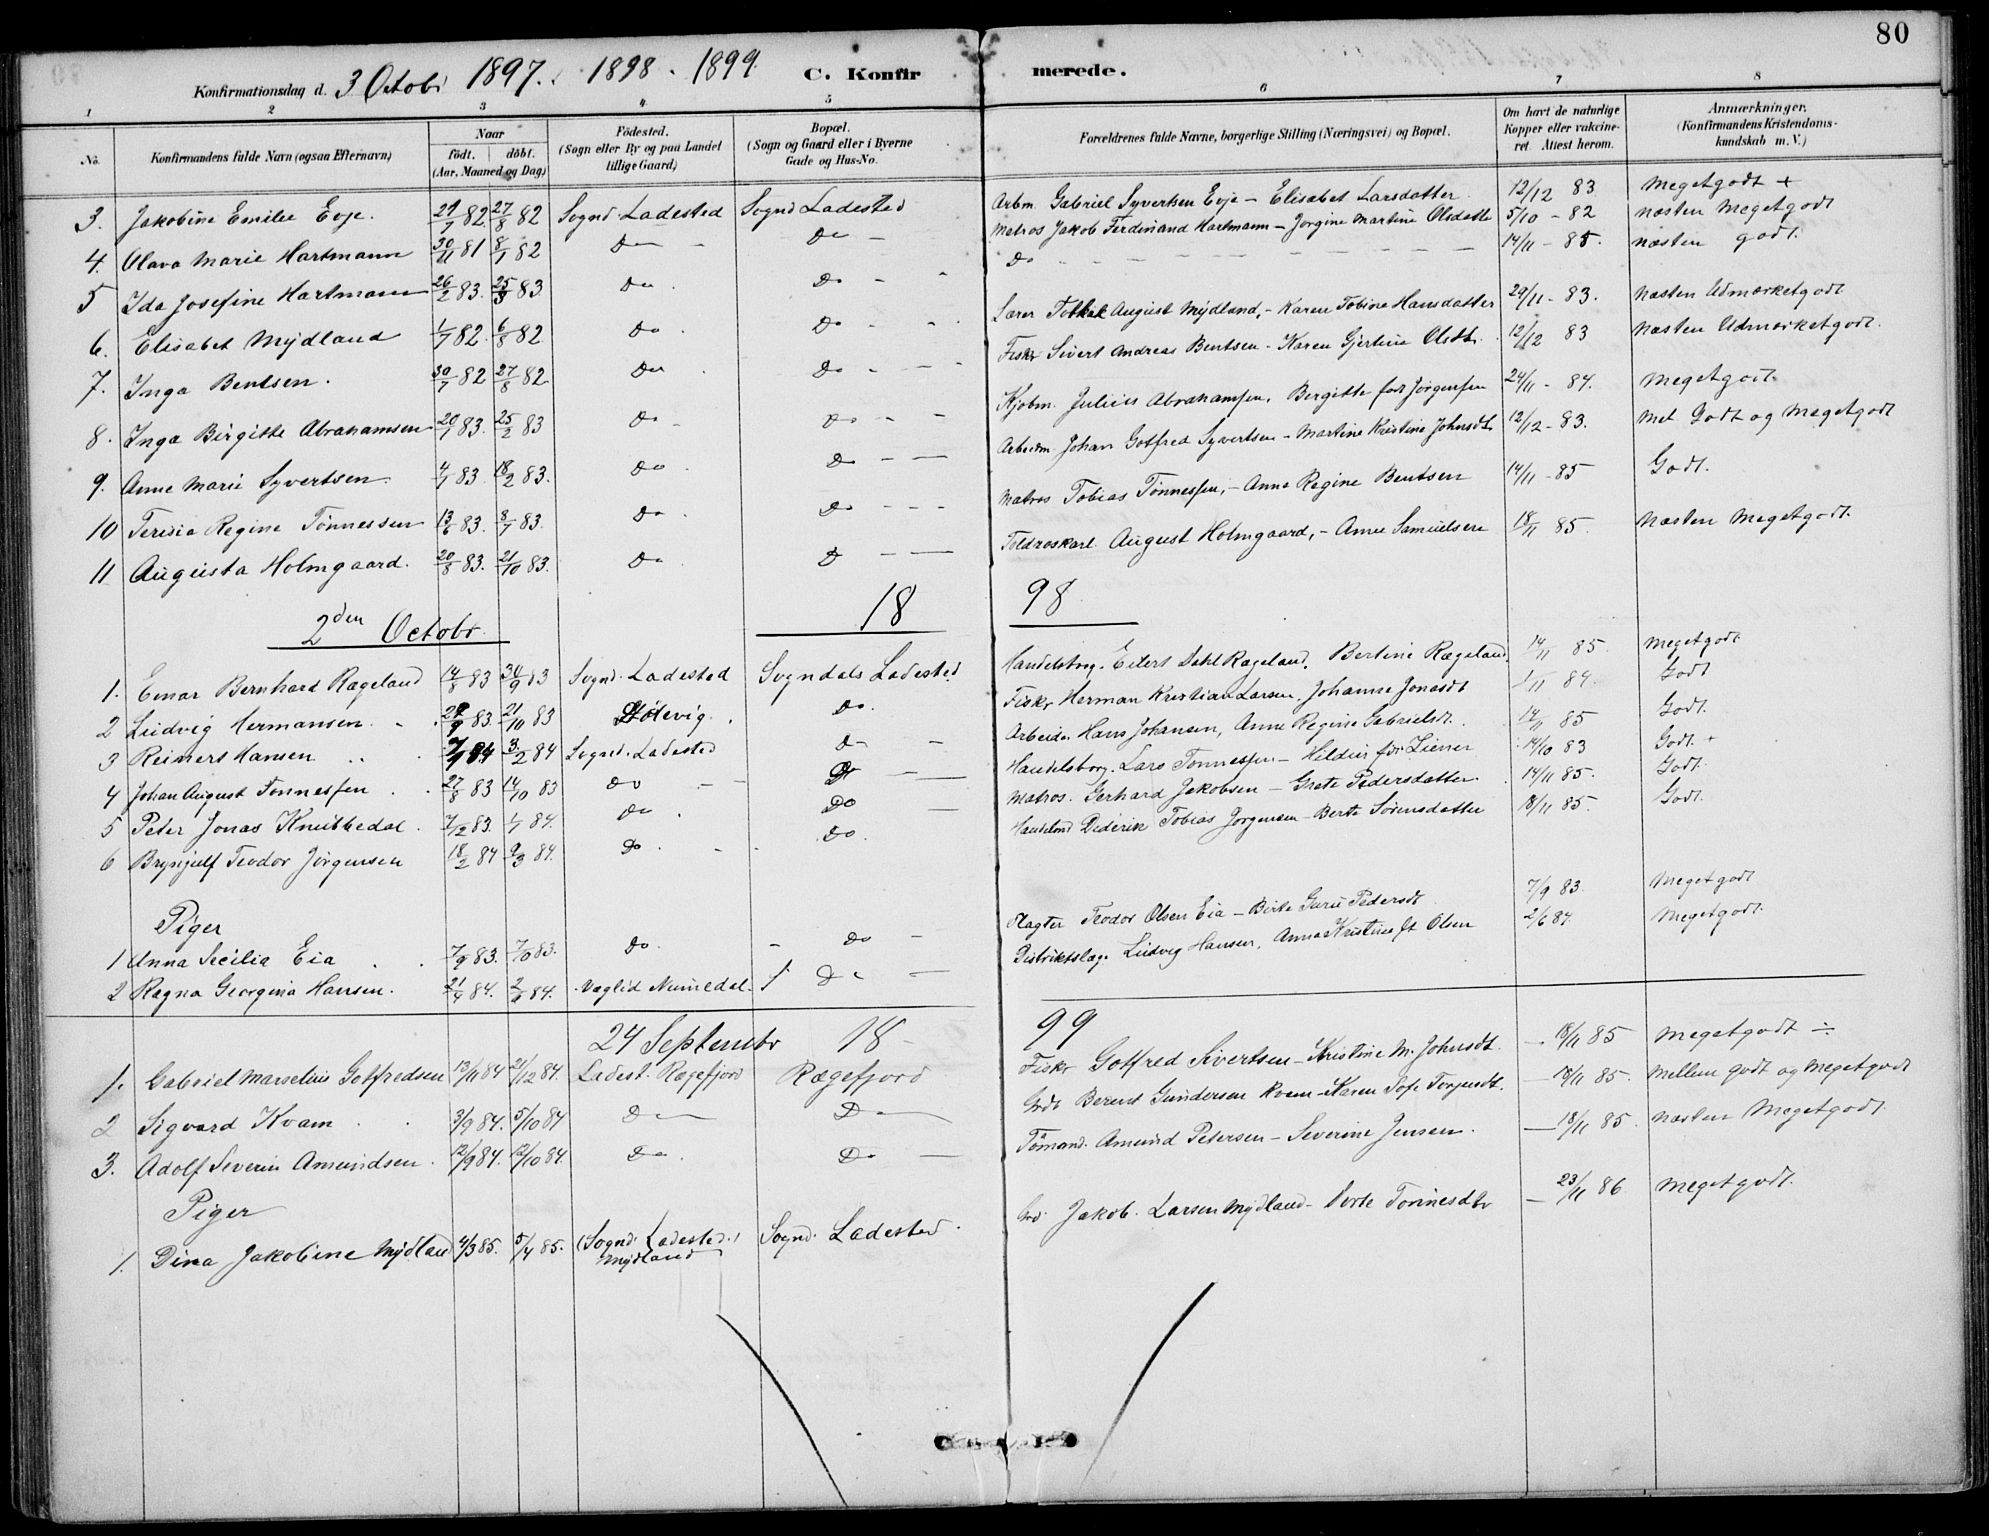 80
Konfirmationsdag d. 3 Octobr 1897. 1898 - 1899 C. Konfirmerede.
1 2 3 4 5 6 7 8
No. Konfirmandens fulde Navn (ogsaa Efternavn) Naar födt. döbt. (Aar, Maaned og Dag) Födested. (Sogn eller By og paa Landet tillige Gaard) Bopæl. (Sogn og Gaard eller i Byerne Gade og Hus-No. Forældrenes fulde Navne, borgerlige Stilling (Næringsvei) og Bopæl. Om havt de naturlige Kopper eller vakcineret. Attest herom. Anmærkninger. (Konfirmandens Kristendomskundskab m. V.)
3. Jakobine Emilie Evje. 29/7 82 27/8 82 Sognd. Ladested Sognd Ladested Arbm. Gabriel Syvertsen Evje - Elisabet Larsdatter 12/12 83 Megetgodt +
4. Olava Marie Hartmann 30/11 81 8/1 82 Do - Do - Matros Jakob Ferdinand Hartmann - Jörgine Martine Olsdatter 5/10 - 82 næsten Megetgodt
5 Ida Josefine Hartmann 26/2 83. 25/3 83 Do Do - Do 14/11 - 85. næsten godt.
6. Elisabet Mydland 1/7 82. 6/8 82 Do. Do - Lærer August Mydland, - Karen Tobine Hansdatter 29/11 - 83. Næsten Udmærketgodt
7. Inga Bentsen. 30/7 82 27/8 82 Do Do - Fisker Sivert Andreas Bentsen - Karen Gjertine Olsdtr. 12/12 83 Næsten Udmærketgodt.
8. Inga Birgitte Abrahamsen 20/1 83. 25/2 83 Do - Do - - Kjöbm. Julius Abrahamsen. Bergitte föd Jörgensen 24/11 - 84. Megetgodt
9. Anne Marie Syvertsen 4/1 83. 18/2 83. Do. Do - - Arbeidm. Johan Gotfred Syvertsen - Martine Kristine Johnsdtr 12/12 - 83. Mel Godt og Megetgodt
10 Teresia Regine Tönnessen 13/6 83. 8/7 83. Do Do - - - Matros Tobias Tönnessen, - Anne Regine Bentsen 14/11 - 85 Godt.
11 Augusta Holmgaard. 20/8 83. 21/10 83. Do D - - Toldroskarl. August Holmgaard, - Anne Samuelsen 18/11 85. Næsten Megetgodt.
2den Octobr. 18 98
1. Einar Bernhard Rægeland 14/8 83 30/9 83 Sognd. Ladested Sogndals Ladested Handelsborg. Eilert Dahl Rægeland. Bertine Rægeland. 14/11 85. Megetgodt.
2 Ludvig Hermansen. 83 21/10 83 Do. Fisker Herman Kristian Larsen, Johanne Jonasdt 84. Godt
3 Reinert Hansen 7/1 84 3/2 84 Sognd. Ladested Do - Arbeider Hans Johansen, Anne Regine Gabrielsdt. 14/11 85 Godt.
4 Johan August Tönnessen 27/8 83 14/10 83 Do - Do - Handelsborg. Lars Tönnessen - 14/10 83 Godt. +
5 Peter Jonas Knubedal. 7/12 83. 1/1 84. Do. Do - Matros. Gerhard Jakobsen - Grete Pedersdatter. 14/11 85. Godt.
6 Brynjulf Teodor Jörgensen 18/2 84 9/3 84. Do. - Do. Handelsmd Diderik Tobias Jörgensen - Berte Sörensdatter 18/11 85. Godt.
Piger
1 Anna Secilia Eia 7/9 83. 7/10 83. Do. - Do - Teodor Olsen Eia - Birte Guru Pedersdt 7/9 83. Megetgodt
2 Ragna Georgina Hansen. 21/4 84. 2/6 84. Numedal. Do - Distriktslæge Ludvig Hansen, Anna Kristine Olsen 2/6 84 Megetgodt.
24 Septembr 18- 99
1. Gabriel Marselius Gotfredsen 13/11 84 21/12 84. Ladest. Rægefjord Rægefjord Fisker Gotfred Sivertsen - Kristine M. Johnsdt. - 18/11 85 Megetgodt ÷
2 Sigvard Kvam 3/9 84. 5/10 84 Do Do Berent Gundersen Kvam - Karen Sofe Torjersdt. - 18/11 85. Mellem godt og Megetgodt
3. Adolf Severin Amundsen. 12/9 84. 12/10 84. Do. Do - Tömand. Amund Petersen - Severine Jensen. - 18/11 85. Næsten Megetgodt.
Piger
1. Dina Jakobine Mydland 4/3 85. 5/4 85. (Sognd. Ladested.) Mydland Sognd. Ladested. Jakob. Larsen Mydland - Dorte Tönnesdtr - 23/11 86 Megetgodt.